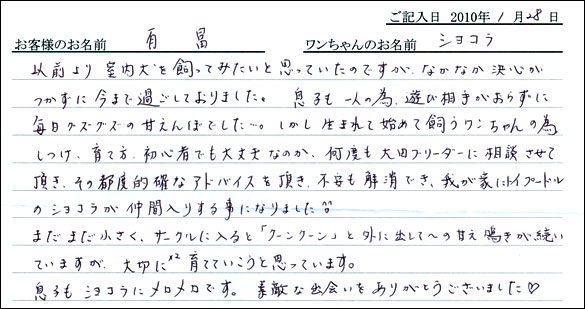 ご記入日 2010年 1月28日
お客様のお名前 百 冨 ワンちゃんのお名前 ショコラ
以前より室内犬を飼ってみたいと思っていたのですが、なかなか決心が
つかずに今まで過ごしておりました。 息子も一人の為、遊び相手がおらずに
毎日グズグズの甘えんぼでした…。しかし生まれて始めて飼うワンちゃんの為
しつけ、育て方、初心者でも大丈夫なのか、何度も大田ブリーダーに相談させて
頂き、その都度的確なアドバイスを頂き、不安も解消でき、我が家にトイプードル
のショコラが仲間入りする事になりました^^
まだまだ小さく、サークルに入ると「クーンクーン」と外に出して〜の甘え鳴きが続い
ていますが、大切に×2育てていこうと思っています。
息子もショコラにメロメロです。 素敵な出会いをありがとうございました♡